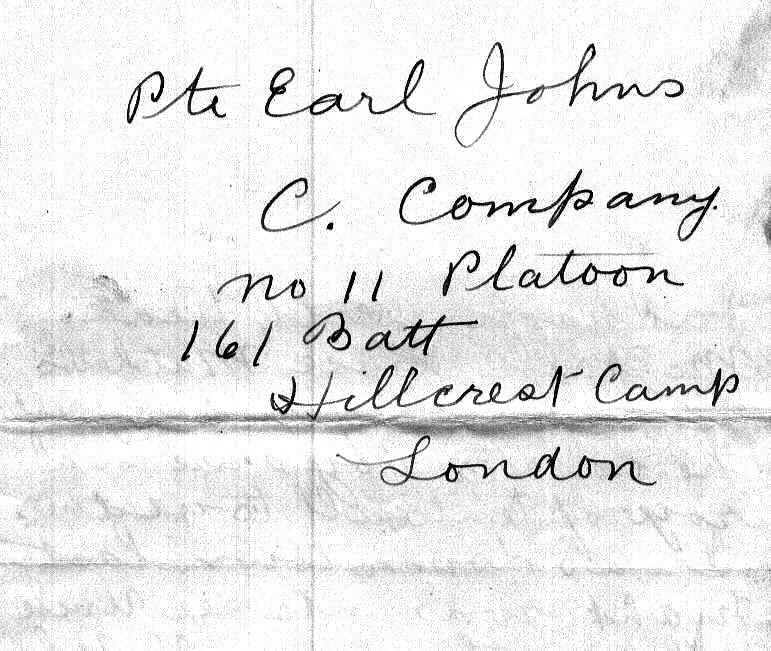 Pte Earl Johns
C. Company.
no 11 Platoon
161 Batt
Hillcrest Camp
London